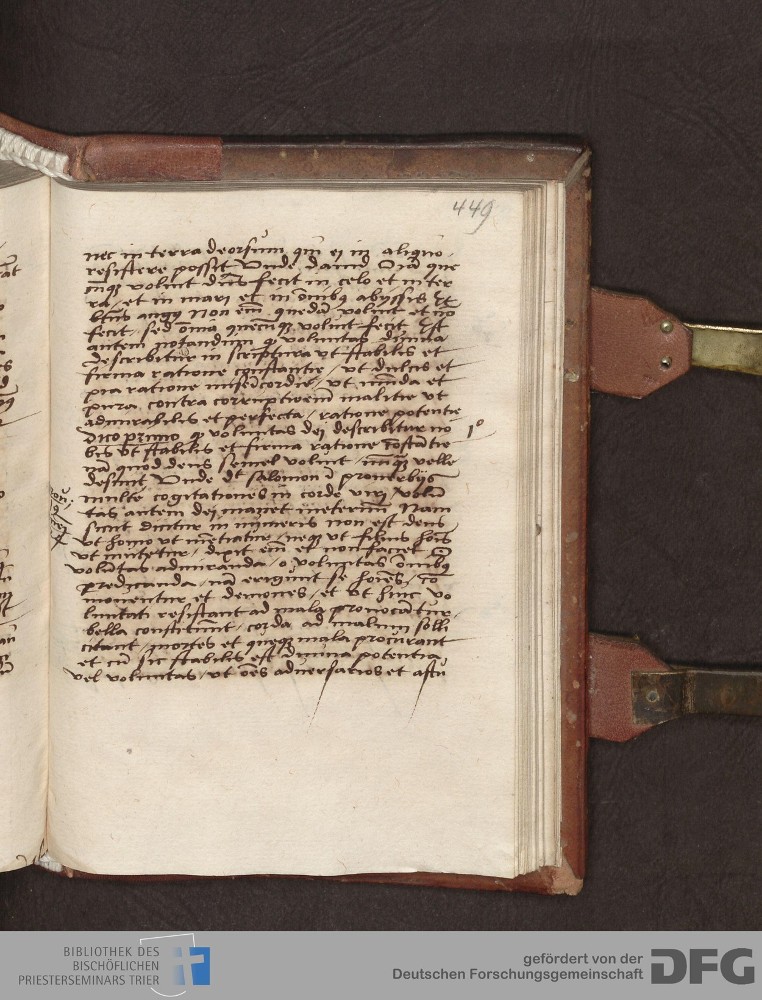 449
nec in terra deorsum qui ei in aliquo
resistere possit Unde dauid Oīa que
cūqꝫ voluit dns fecit in celo et in ter
ra et in mari et in oībꝫ abyssis Et
btūs Non em̄ quedā voluit et nō
fecit sed oīma quecūqꝫ voluit fecit Est
autem notandum ꝙ voluntas diuina
describitur in scriptura vt stabilis et
firma ratione constantie / vt dulcis et
pia ratione misēcordie / vt mūda et
pura contra corruptioem malitie vt
admirabilis et perfecta / ratione potentie
Dico primo ꝙ voluntas dei describitur no
1º
bis vt stabilis et firma ratione cōstātie
nā quod deus semel voluit velle
desinit Unde dt̄ salomon ī prouerbijs
multe cogitationes in corde viri volū
tas autem dei manet ineternū Nam
sicut dicitur in numeris non est deus
vt homo vt mētiatur / neqꝫ vt filius hoīs
vt mutetur / dixit em̄ et non faciet O
volūtas admiranda / o voluntas oībꝫ
predicanda / nā erigūnt se hoīes / cō
mouentur et demones / et vt huic vo
luntati resistant ad mala prouocātur
bella constituūt / corda ad malum solli
citant / mortes et queqꝫ mala procurant
et cū sic stabilis est diuina potentia
vel voluntas / vt oēs aduersarios et astu
BIBLIOTHEK DES
BISCHÖFLICHEN
PRIESTERSEMINARS TRIER
gefördert von der
Deutschen Forschungsgemeinschaft
DFG